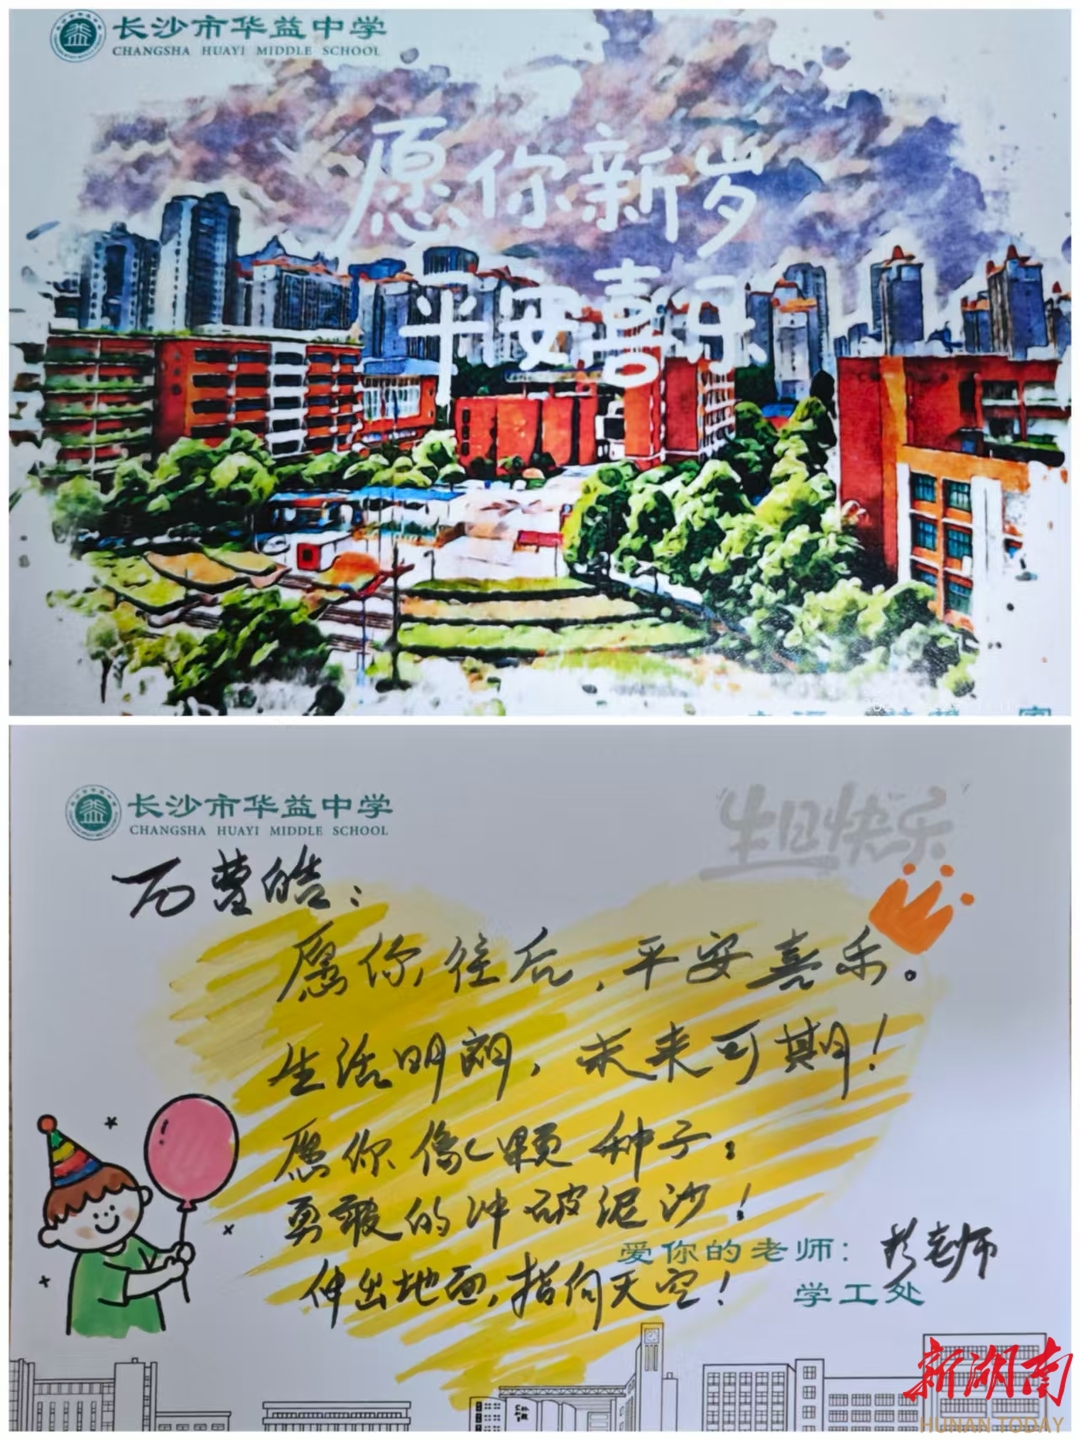 长沙市华益中学
CHANGSHA HUAYI MIDDLE SCHOOL
愿你新岁
平安喜乐
长沙市华益中学
CHANGSHA HUAYI MIDDLE SCHOOL
生日快乐
愿你往后,平安喜乐。
生活明朗,未来可期!
愿你像颗种子:
勇敢的冲破泥沙!
爱你的老师:老师
伸出地面,指向天空!
学工处
新湖南
HUNAN TODAY